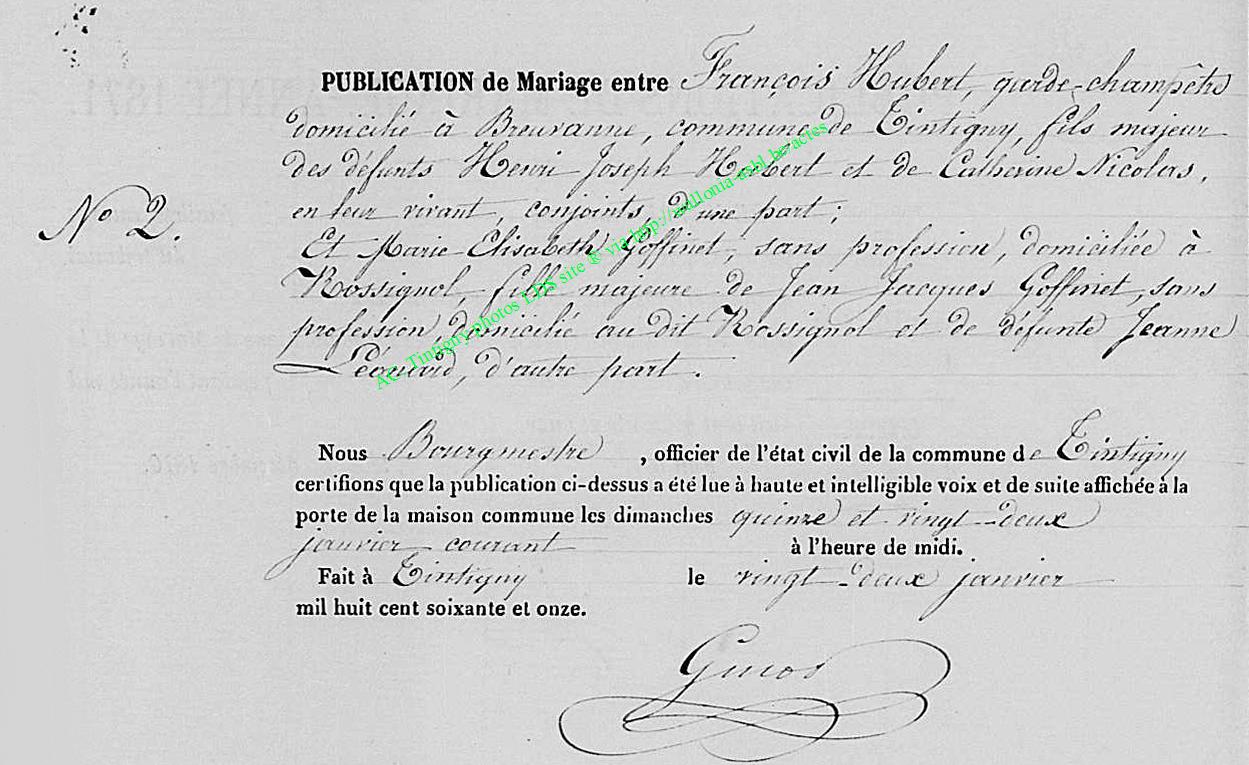 PUBLICATION de Mariage entre François Hubert, garde-champêtre
domicilié à Breuvanne, commune de Tintigny, fils majeur
des défunts Henri Joseph Hubert et de Catherine Nicolas,
en leur vivant, conjoints, d'une part ;
No 2.
Et Marie Elisabeth Goffinet, sans profession, domiciliée à
Rossignol, fille majeure de Jean Jacques Goffinet, sans
profession, domicilié au dit Rossignol et de défunte Jeanne
Léonard, d'autre part.
Act. Tintigny photos LDS site & via http://wallonia-asbl.be/actes
Nous Bourgmestre, officier de l'état civil de la commune de Tintigny
certifions que la publication ci-dessus a été lue à haute et intelligible voix et de suite affichée à la
porte de la maison commune les dimanches quinze et vingt-deux
janvier courant à l'heure de midi.
Fait à Tintigny le vingt-deux janvier
mil huit cent soixante et onze.